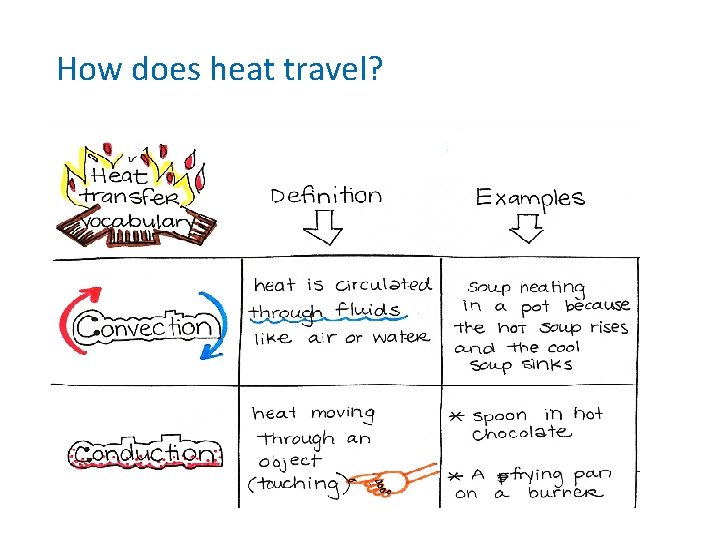 How does heat travel?
Heat
transfer
vocabulary
Definition
Examples
Convection
heat is circulated
through fluids
like air or water
soup heating
in a pot because
the hot soup rises
and the cool
soup sinks
Conduction
heat moving
through an
object
(touching)
* spoon in hot
chocolate
* A frying pan
on a burner